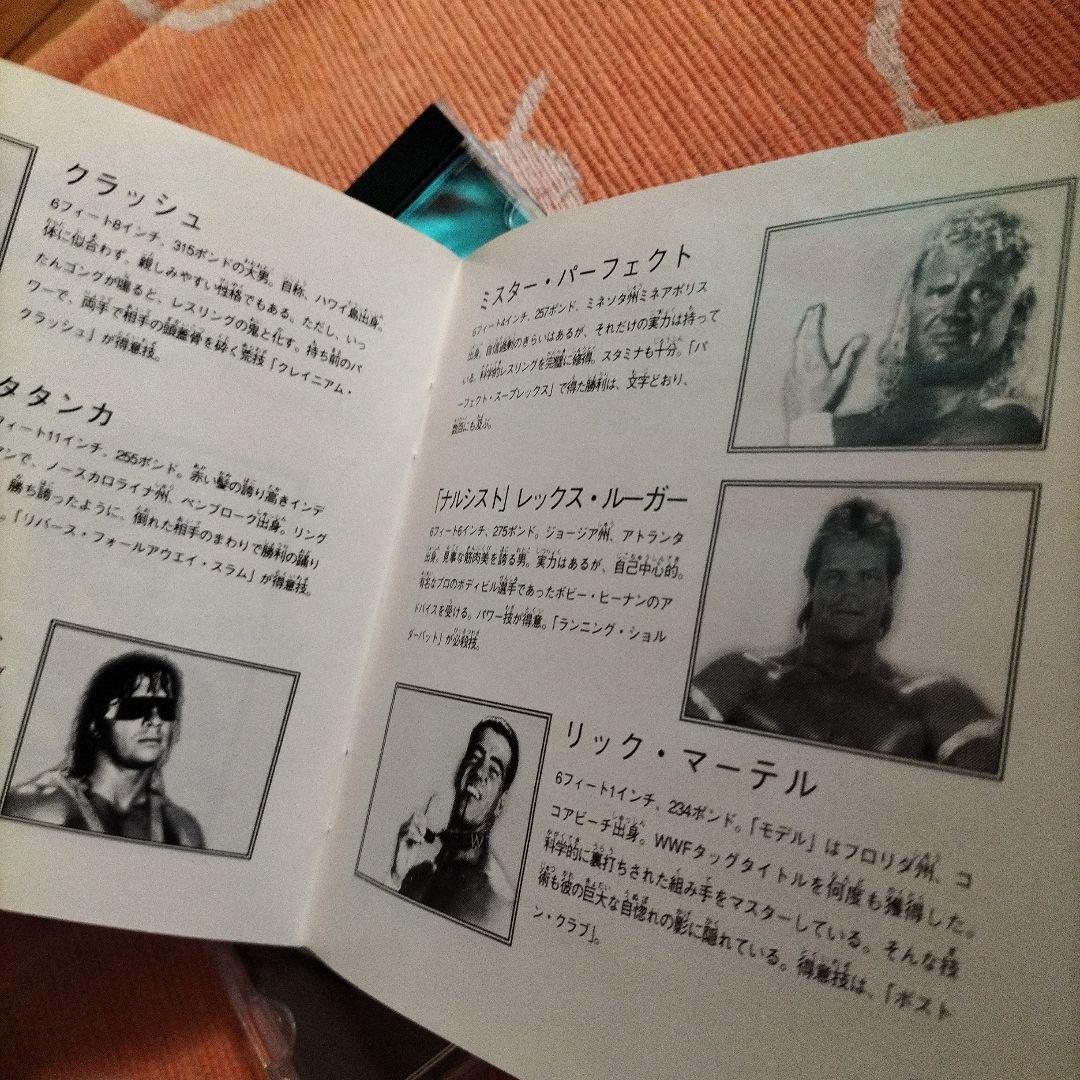 クラッシュ
6フィート8インチ、315ポンドの大男。自称、ハワイ島出身。
体に似合わず、親しみやすい性格でもある。ただし、いっ
たんゴングが鳴ると、レスリングの鬼と化す。持ち前のパ
ワーで、両手で相手の頭蓋骨を砕く荒技「クレイニアム・
クラッシュ」が得意技。
タタンカ
フィート11インチ、255ポンド。赤い髪の誇り高きインデ
アンで、ノースカロライナ州、ペンブローク出身。リング
勝ち誇ったように、倒れた相手のまわりで勝利の踊り
「リバース・フォールアウェイ・スラム」が得意技。
ミスター・パーフェクト
6フィート4インチ、257ポンド、ミネソタ州ミネアポリス
出身。自信過剰のきらいはあるが、それだけの実力は持って
いる。科学的レスリングを完璧に修得。スタミナも十分。「パ
ーフェクト・スープレックス」で得た勝利は、文字どおり、
数百にも及ぶ。
「ナルシスト」レックス・ルーガー
6フィート6インチ、275ポンド。ジョージア州、アトランタ
出身。見事な筋肉美を誇る男。実力はあるが、自己中心的。
有名なプロのボディビル選手であったボビー・ヒーナンのア
ドバイスを受ける。パワー技が得意。「ランニング・ショル
ダーバット」が必殺技。
リック・マーテル
6フィート1インチ、234ポンド。「モデル」はフロリダ州、コ
コアビーチ出身。WWFタッグタイトルを何度も獲得した。
科学的に裏打ちされた組み手をマスターしている。そんな技
術も彼の巨大な自惚れの影に隠れている。得意技は、「ボスト
ン・クラブ」。